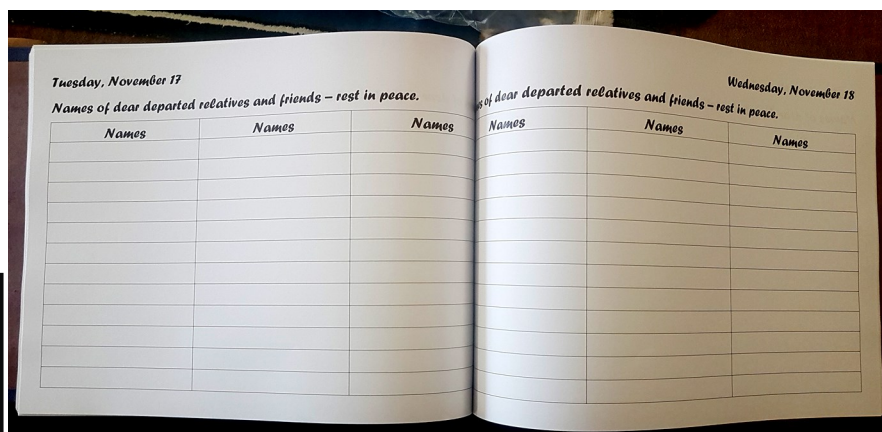 Tuesday, November 17
Names of dear departed relatives and friends – rest in peace.
Names Names Names
Wednesday, November 18
of dear departed relatives and friends – rest in peace.
Names Names Names